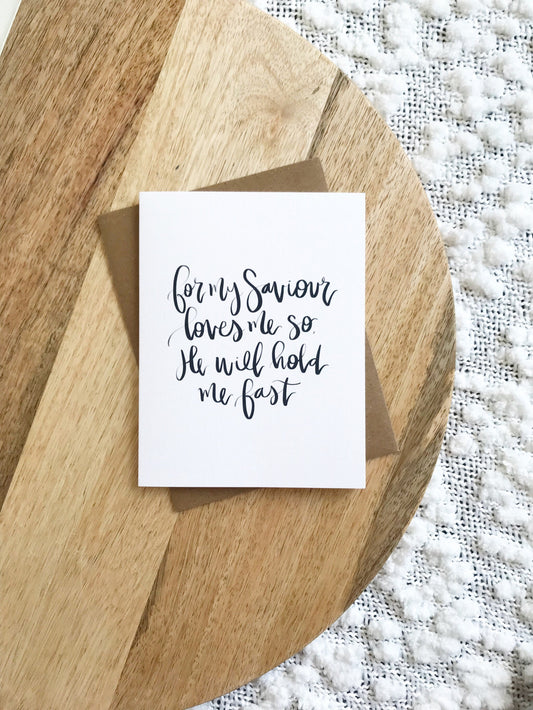 for my Saviour
loves me so.
He will hold
me fast